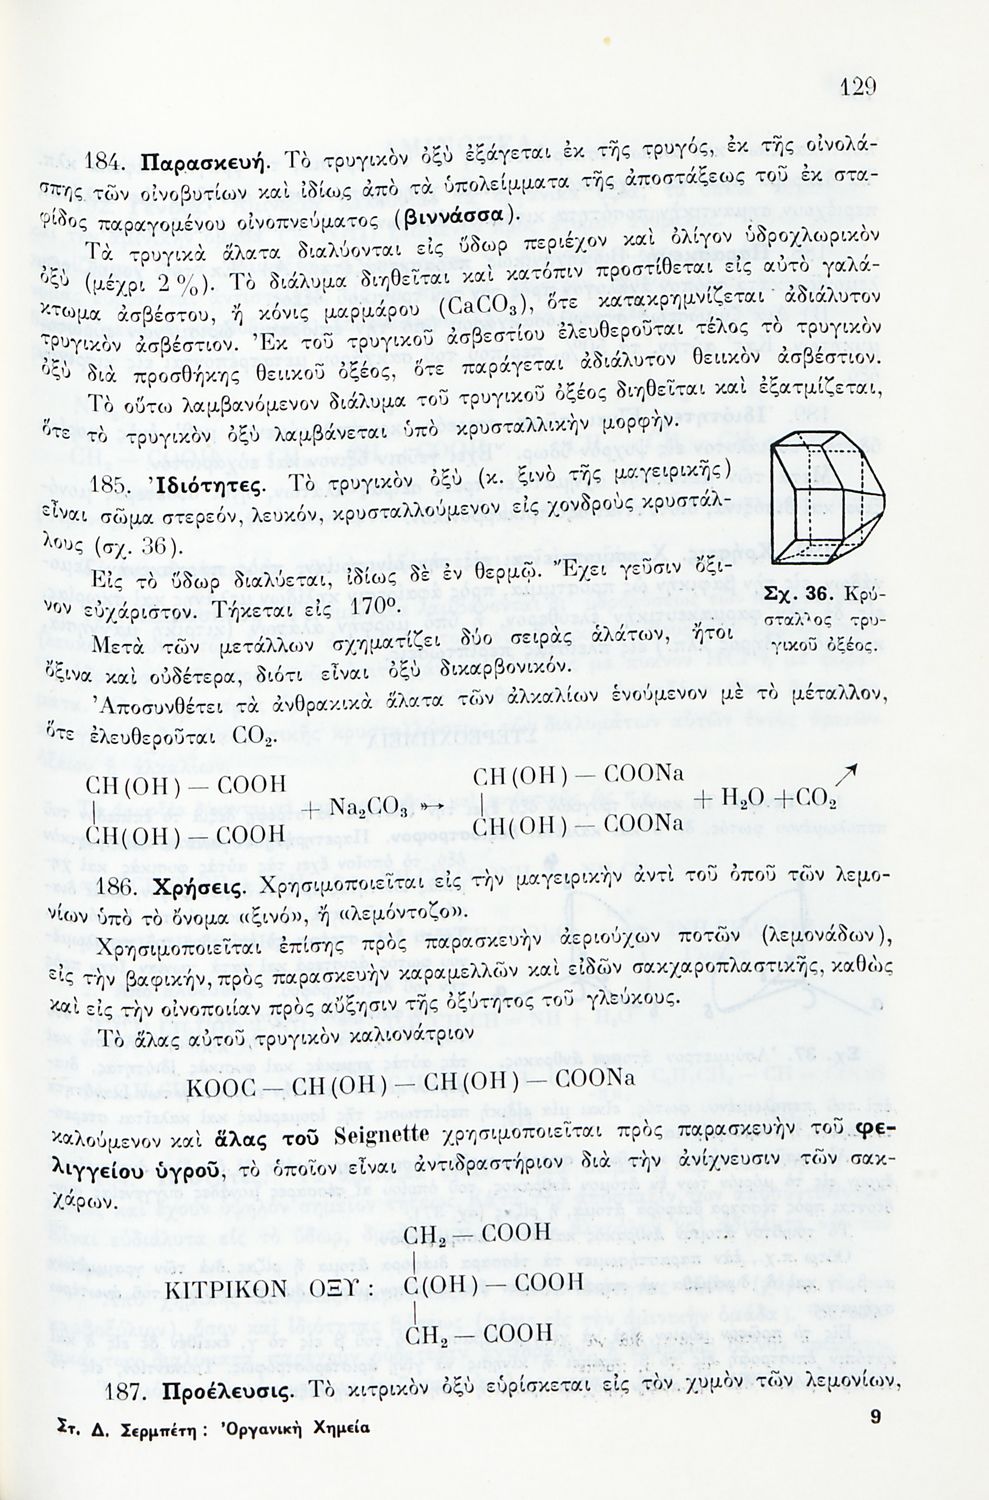 129
184. Παρασκευή. Τὸ τρυγικὸν ὀξὺ ἐξάγεται ἐκ τῆς τρυγός, ἐκ τῆς οἰνολά-
σπης τῶν οἰνοβυτίων καὶ ἰδίως ἀπὸ τὰ ὑπολείμματα τῆς ἀποστάξεως τοῦ ἐκ στα-
φίδος παραγομένου οἰνοπνεύματος (βιννάσσα).
Τὰ τρυγικὰ ἅλατα διαλύονται εἰς ὕδωρ περιέχον καὶ ὀλίγον ὑδροχλωρικὸν
ὀξὺ (μέχρι 2 %). Τὸ διάλυμα διηθεῖται καὶ κατόπιν προστίθεται εἰς αὐτὸ γαλά-
κτωμα ἀσβέστου, ἢ κόνις μαρμάρου (CaCO₃), ὅτε κατακρημνίζεται ἀδιάλυτον
τρυγικὸν ἀσβέστιον. Ἐκ τοῦ τρυγικοῦ ἀσβεστίου ἐλευθεροῦται τέλος τὸ τρυγικὸν
ὀξὺ διὰ προσθήκης θειικοῦ ὀξέος, ὅτε παράγεται ἀδιάλυτον θειικὸν ἀσβέστιον.
Τὸ οὕτω λαμβανόμενον διάλυμα τοῦ τρυγικοῦ ὀξέος διηθεῖται καὶ ἐξατμίζεται,
ὅτε τὸ τρυγικὸν ὀξὺ λαμβάνεται ὑπὸ κρυσταλλικὴν μορφήν.
185. Ἰδιότητες. Τὸ τρυγικὸν ὀξὺ (κ. ξινὸ τῆς μαγειρικῆς)
εἶναι σῶμα στερεόν, λευκόν, κρυσταλλούμενον εἰς χονδροὺς κρυστάλ-
λους (σχ. 36).
Εἰς τὸ ὕδωρ διαλύεται, ἰδίως δὲ ἐν θερμῷ. Ἔχει γεῦσιν ὄξι-
νον εὐχάριστον. Τήκεται εἰς 170º.
Σχ. 36. Κρύ-
σταλλος τρυ-
γικοῦ ὀξέος.
Μετὰ τῶν μετάλλων σχηματίζει δύο σειρὰς ἁλάτων, ἤτοι
ὄξινα καὶ οὐδέτερα, διότι εἶναι ὀξὺ δικαρβονικόν.
Ἀποσυνθέτει τὰ ἀνθρακικὰ ἅλατα τῶν ἀλκαλίων ἑνούμενον μὲ τὸ μέταλλον,
ὅτε ἐλευθεροῦται CO₂.
CH (OH) — COOH CH (OH) — COONa
| + Na₂CO₃ ↦ | + H₂O + CO₂ ↗
CH(OH) — COOH CH(OH) — COONa
186. Χρήσεις. Χρησιμοποιεῖται εἰς τὴν μαγειρικὴν ἀντὶ τοῦ ὀποῦ τῶν λεμο-
νίων ὑπὸ τὸ ὄνομα «ξινό», ἢ «λεμόντοζο».
Χρησιμοποιεῖται ἐπίσης πρὸς παρασκευὴν ἀεριούχων ποτῶν (λεμονάδων),
εἰς τὴν βαφικήν, πρὸς παρασκευὴν καραμελλῶν καὶ εἰδῶν σακχαροπλαστικῆς, καθὼς
καὶ εἰς τὴν οἰνοποιίαν πρὸς αὔξησιν τῆς ὀξύτητος τοῦ γλεύκους.
Τὸ ἅλας αὐτοῦ τρυγικὸν καλιονάτριον
KOOC — CH (OH) — CH (OH) — COONa
καλούμενον καὶ ἅλας τοῦ Seignette χρησιμοποιεῖται πρὸς παρασκευὴν τοῦ φε-
λιγγείου ὑγροῦ, τὸ ὁποῖον εἶναι ἀντιδραστήριον διὰ τὴν ἀνίχνευσιν τῶν σακ-
χάρων.
CH₂ — COOH
|
ΚΙΤΡΙΚΟΝ ΟΞΥ : C(OH) — COOH
|
CH₂ — COOH
187. Προέλευσις. Τὸ κιτρικὸν ὀξὺ εὑρίσκεται εἰς τὸν χυμὸν τῶν λεμονίων,
Στ. Δ. Σερμπέτη : Ὀργανικὴ Χημεία 9